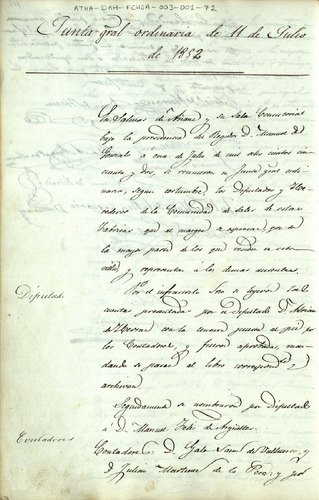 ATHA-DAH-FCHSA-003-001-72
Junta gral ordinaria de 11 de Julio
de 1852
En Salinas de Añana y su Sala Consistorial
bajo la presidencia del Regidor D. Manuel de
á once de Julio de mil ocho cientos cin
cuenta y dos, se reunieron en Junta gral ordi
naria, segun costumbre, los Diputados y He
rederos de la Comunidad de Sales de estas
Fabricas que al margen se espresan, que son
la mayor parte de los que residen en esta
villa, y representan á los demas ausentes.
Por el infrascrito Srio se leyeron las
cuentas presentadas por el Diputado D. Adrian
de Herran con la censura puesta al pie por
los Contadores, y fueron aprobadas, man
dando se pasen al libro correspondte y
archiven
Diputado
Seguidamente se nombraron por Diputado
á D. Manuel Felix de Argüelles
Contadores
Contadores D. Galo Sainz del Valluerca, y
D. Julian Martinez de la Pera, y por